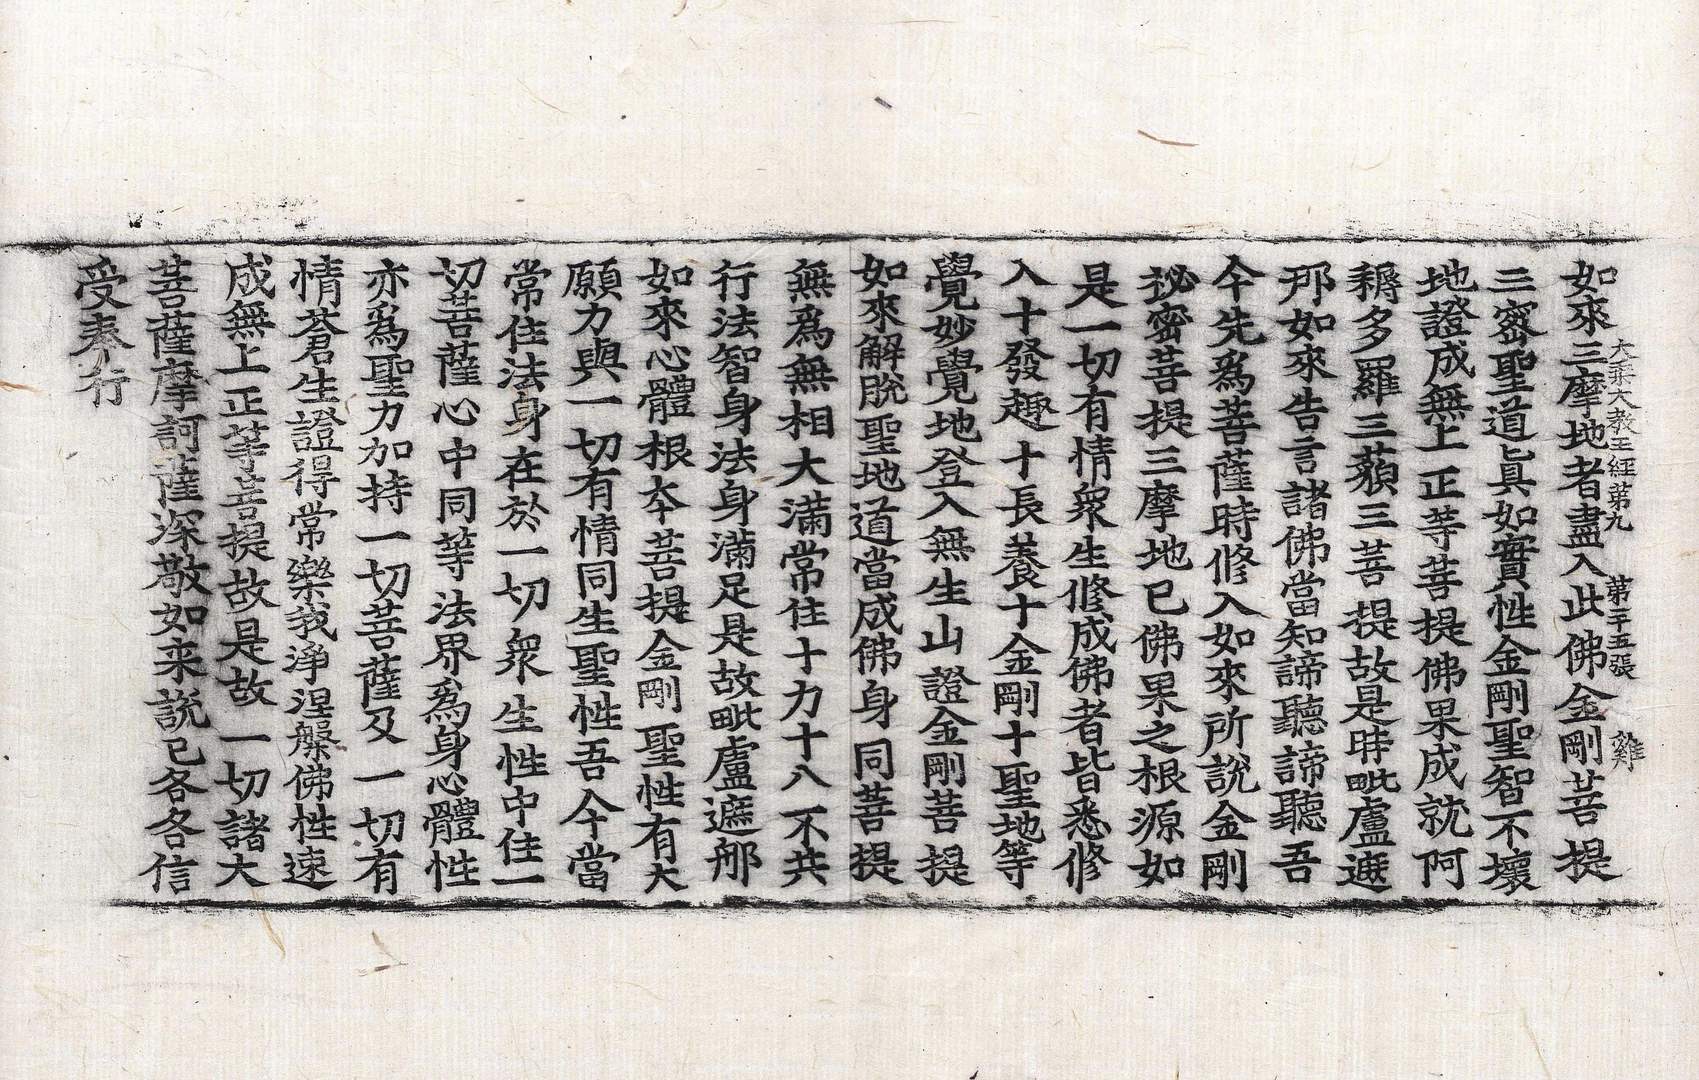 大乘大教王經第九 第二十五張 雞
如來三摩地者盡入此佛金剛菩提
三密聖道眞如實性金剛聖智不壞
地證成無上正等菩提佛果成就阿
耨多羅三藐三菩提故是時毗盧遮
那如來告言諸佛當知諦聽諦聽吾
今先爲菩薩時修入如來所說金剛
祕密菩提三摩地已佛果之根源如
是一切有情衆生修成佛者皆悉修
入十發趣十長養十金剛十聖地等
覺妙覺地登入無生山證金剛菩提
如來解脫聖地道當成佛身同菩提
無爲無相大滿常住十力十八不共
行法智身法身滿足是故毗盧遮那
如來心體根本菩提金剛聖性有大
願力與一切有情同生聖性吾今當
常住法身在於一切衆生性中住一
切菩薩心中同等法界爲身心體性
亦爲聖力加持一切菩薩及一切有
情蒼生證得常樂我淨涅槃佛性速
成無上正等菩提故是故一切諸大
菩薩摩訶薩深敬如來說已各各信
受奉行